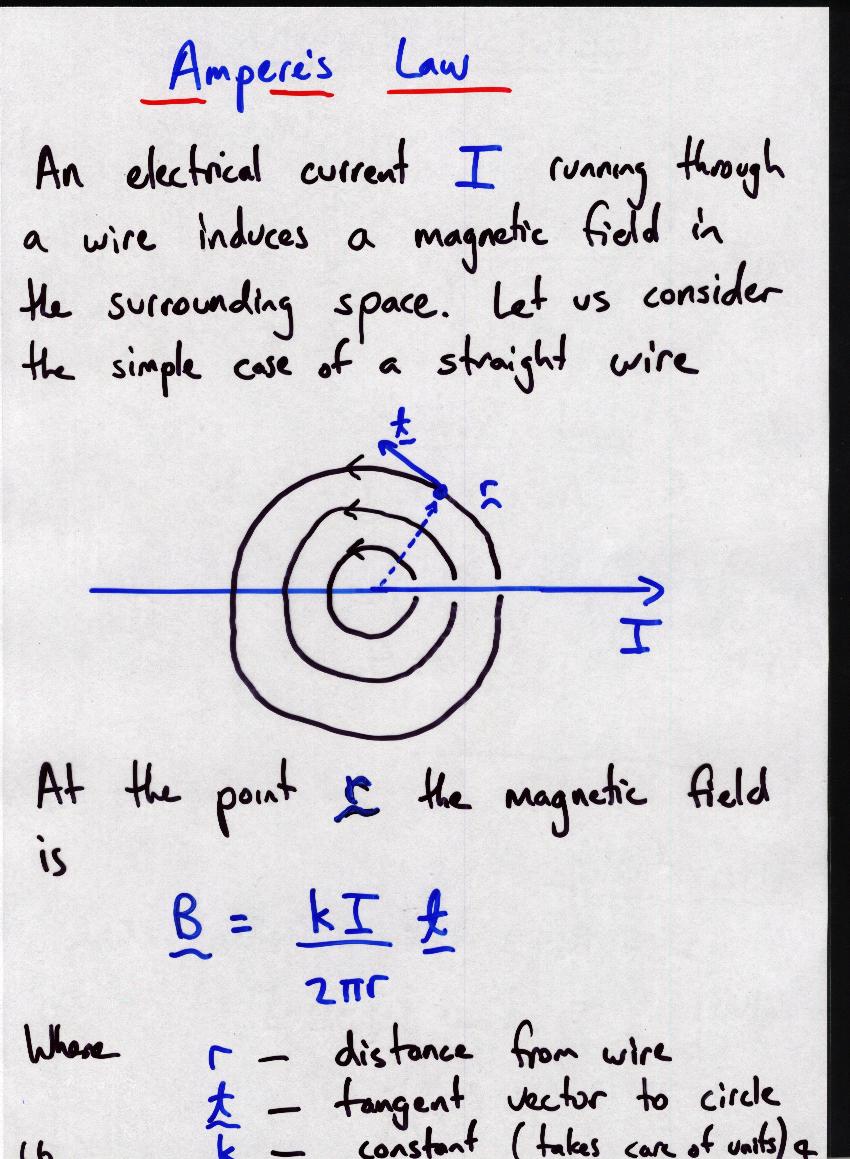 Ampere's Law
An electrical current I running through
a wire induces a magnetic field in
the surrounding space. Let us consider
the simple case of a straight wire
t
r
I
At the point r the magnetic field
is
B = kI t
2πr
Where r — distance from wire
t — tangent vector to circle
k — constant (takes care of units)